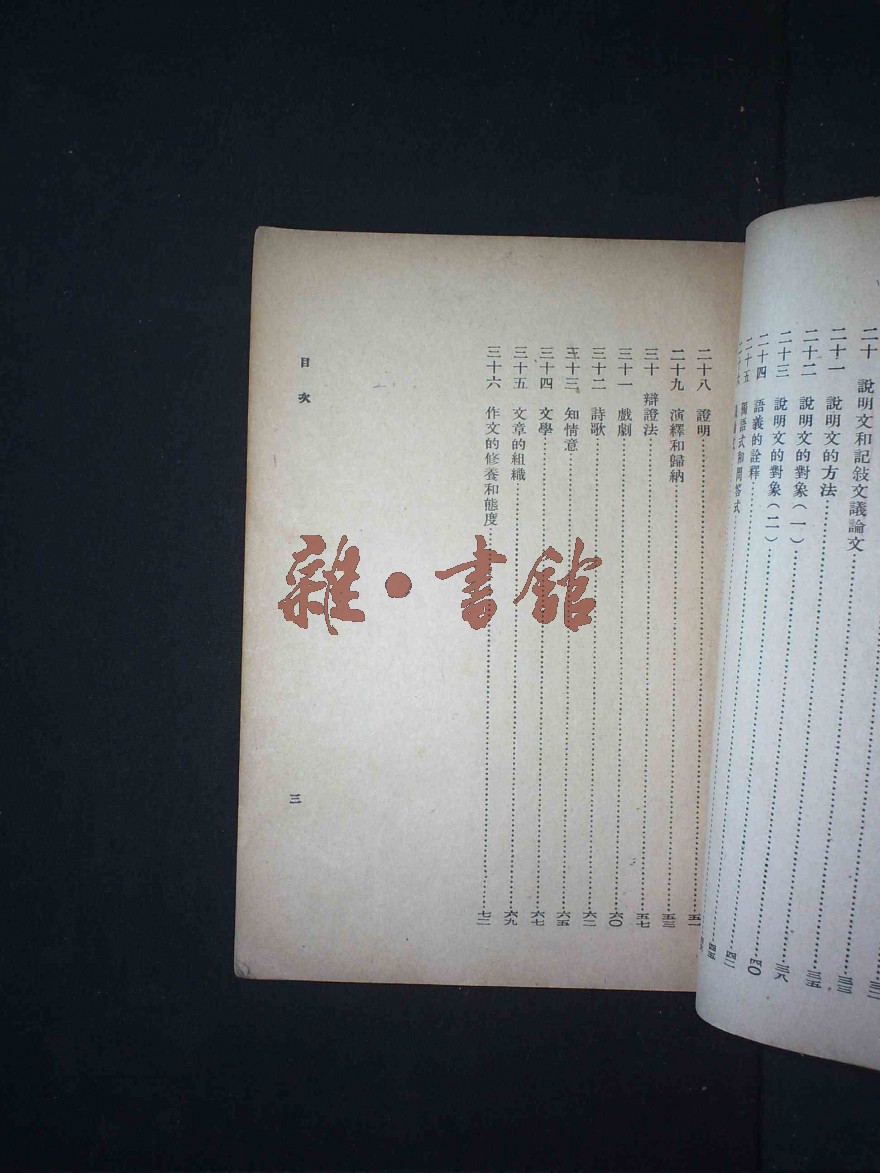 二十 說明文和記敍文議論文……三二
二十一 說明文的方法……三三
二十二 說明文的對象(一)……三五
二十三 說明文的對象(二)……三八
二十四 語義的詮釋……四〇
二十五 獨語式和問答式……四二
二十八 證明……五一
二十九 演繹和歸納……五三
三十 辯證法……五七
三十一 戲劇……六〇
三十二 詩歌……六二
三十三 知情意……六五
三十四 文學……六七
三十五 文章的組織……六九
三十六 作文的修養和態度……七二
目次
三
雜·書館